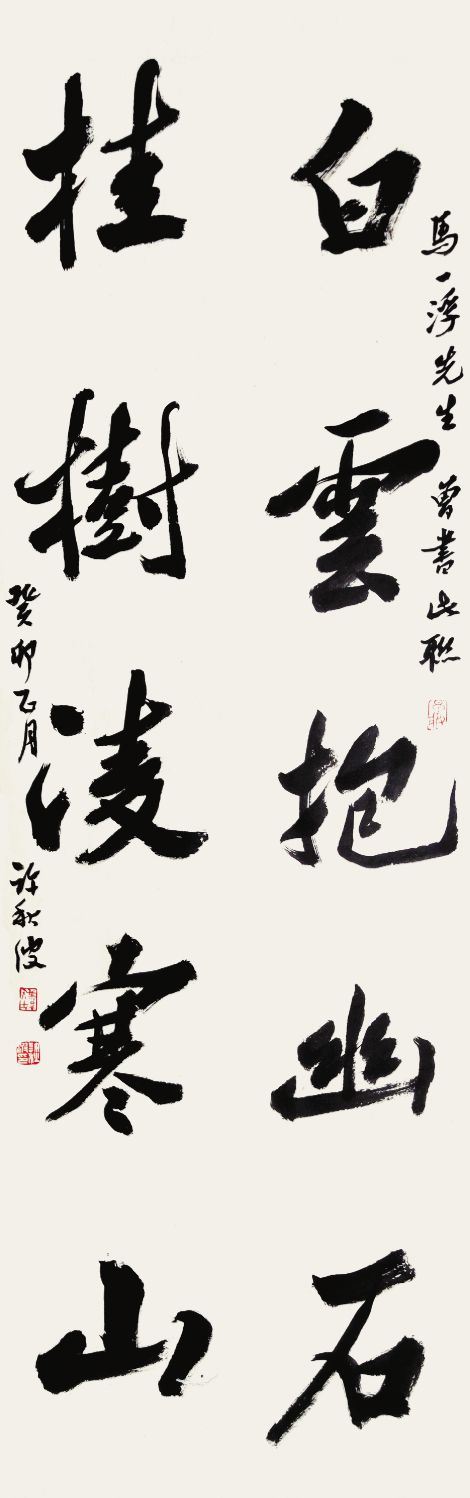 馬一浮先生曾書此聯
白雲抱幽石
桂樹淩寒山
癸卯正月 許秋波